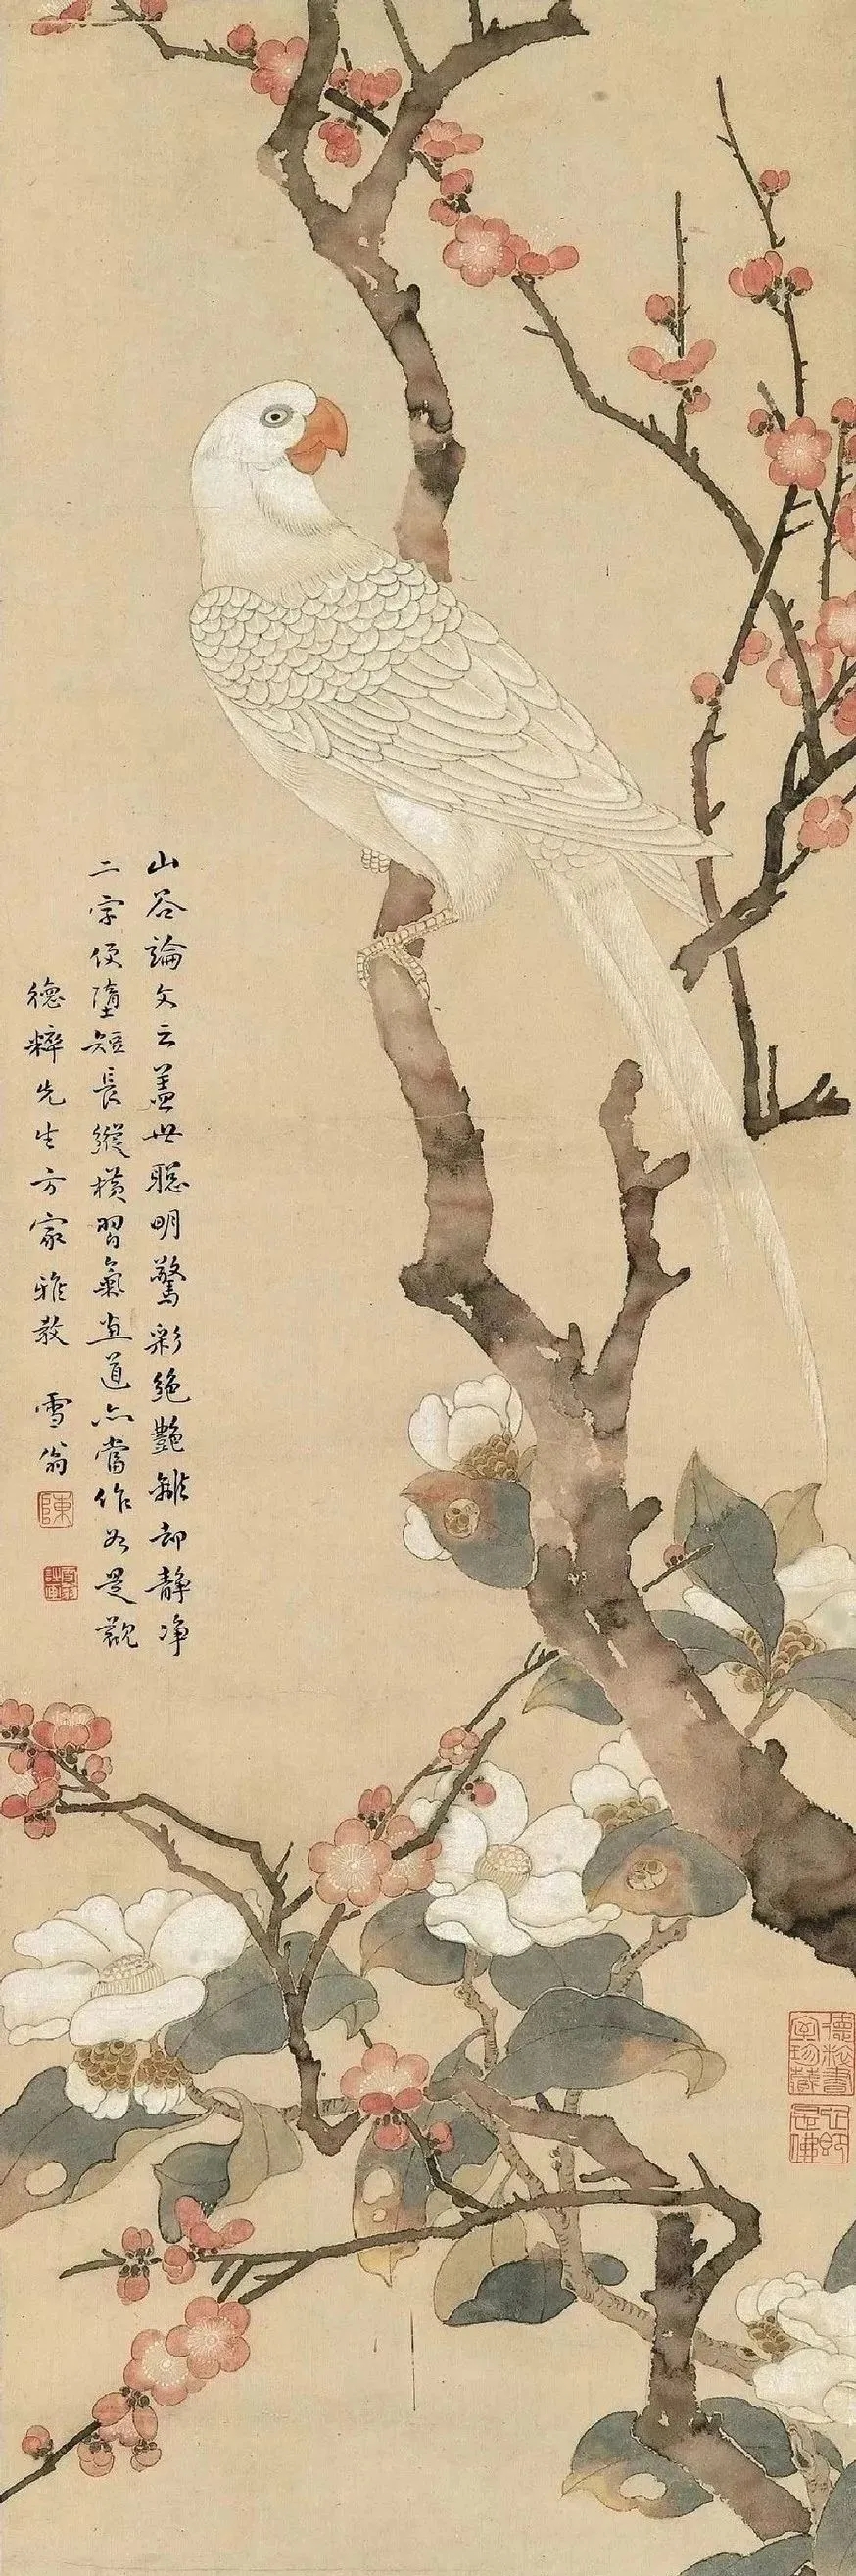 山谷論文云蓋世聰明驚彩絕艷離却静净
二字便墮短長縱橫習氣直道亦當作如是觀
德粹先生方家雅教 雪翁
陳
德松書
室珍藏